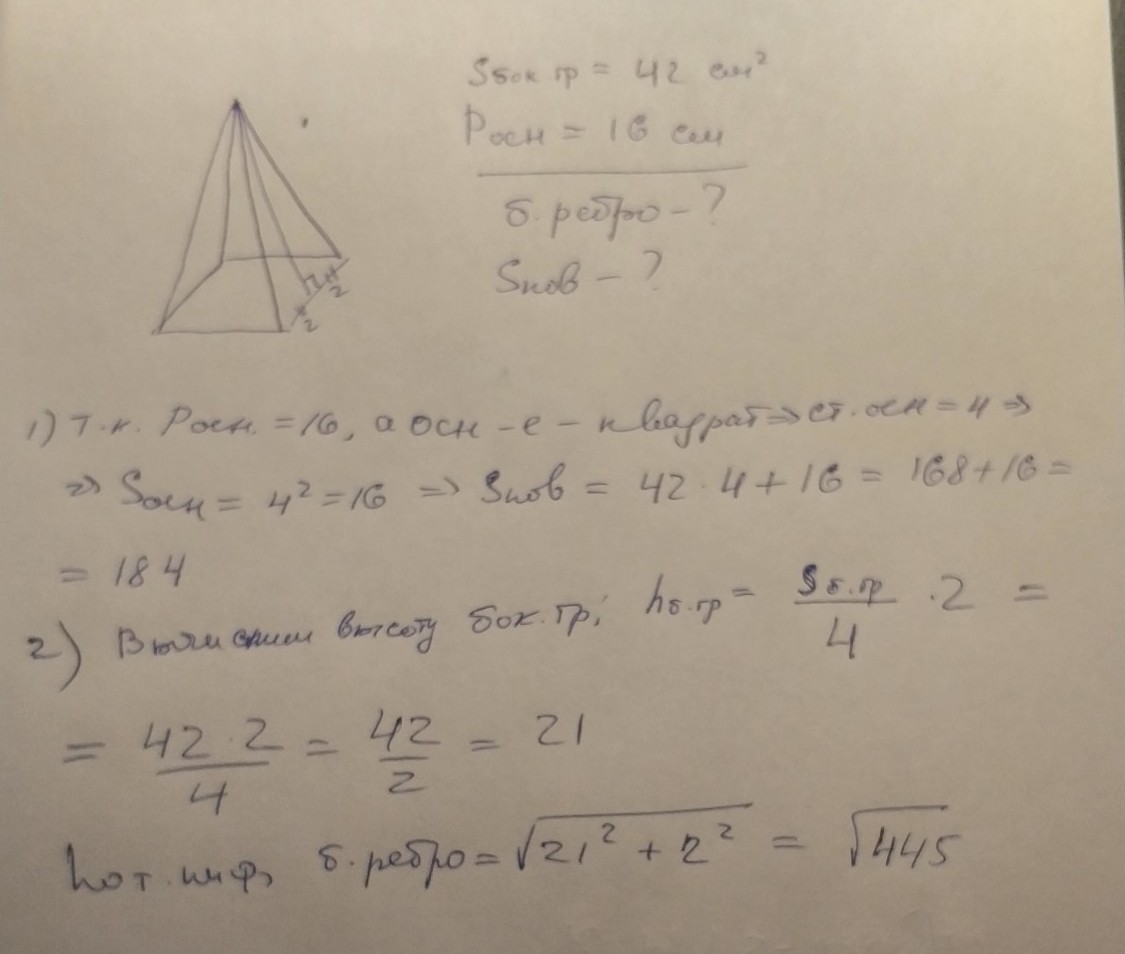 Sбок.гр = 42 см²
Pосн = 16 см
б.ребро - ?
Sпов - ?
2
2
1) Т.к. Pосн. = 16, а осн-е - квадрат => ст. осн = 4 =>
=> Sосн = 4² = 16 => Sпов = 42 · 4 + 16 = 168 + 16 =
= 184
2) Вычислим высоту бок.гр; hб.гр = Sб.гр/4 · 2 =
= 42·2/4 = 42/2 = 21
б.ребро = √21² + 2² = √445